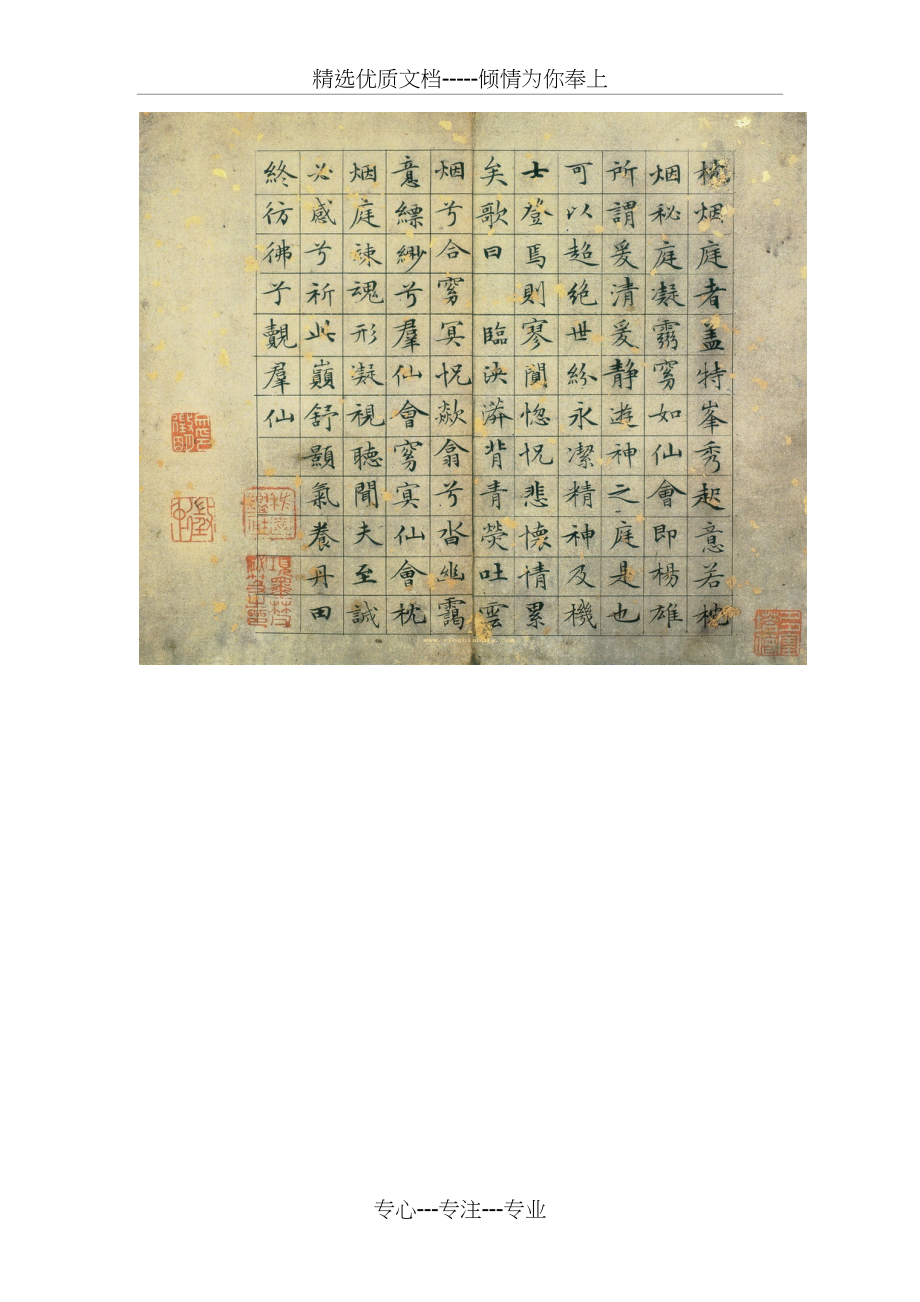 精选优质文档-----倾情为你奉上
枕烟庭者盖特峯秀起意若枕
烟秘庭凝霛窅如仙會即楊雄
所謂爰清爰静遊神之庭是也
可以超絶世紛永潔精神及機
士登焉則寥闃惚怳悲懷情累
矣歌曰 臨泱漭背青熒吐雲
烟兮合窅冥怳欻翕兮沓幽靄
意縹緲兮羣仙會窅冥仙會枕
烟庭竦魂形凝視聴聞夫至誠
必感兮祈此巔舒顥氣養丹田
終彷彿兮覿羣仙
专心---专注---专业